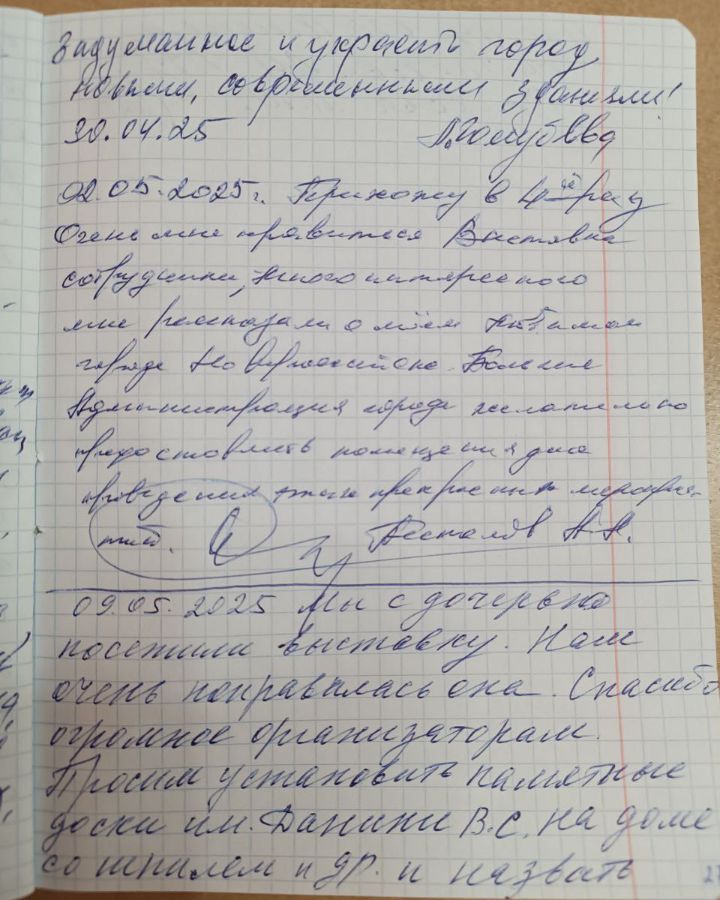 Задуманное и украсить город
новыми, современными зданиями!
30.04.25
02.05.2025г. Прихожу в 4й раз
Очень мне нравится выставка
сотрудники, много интересного
мне рассказали о моём любимом
городе Новороссийске. Больше
Администрация города желательно
предоставлять помещения для
проведения таких прекрасных мероприя-
тий. Беспалов А.Н.
09.05.2025 Мы с дочерью
посетили выставку. Нам
очень понравилась она. Спасибо
огромное организаторам.
Просим установить памятные
доски им. Данини В.С. на доме
со шпилем и др. и назвать